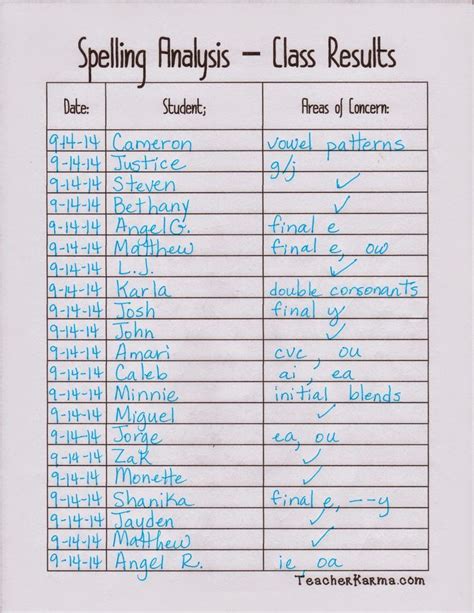 Spelling Analysis – Class Results
Date: Student; Areas of Concern:
9-14-14 Cameron vowel patterns
9-14-14 Justice g/j
9-14-14 Steven ✓
9-14-14 Bethany ✓
9-14-14 Angel G. final e
9-14-14 Matthew final e, ow
9-14-14 L.J. ✓
9-14-14 Karla double consonants
9-14-14 Josh final y
9-14-14 John ✓
9-14-14 Amari cvc, ou
9-14-14 Caleb ai, ea
9-14-14 Minnie initial blends
9-14-14 Miguel ✓
9-14-14 Jorge ea, ou
9-14-14 Zak ✓
9-14-14 Monette ✓
9-14-14 Shanika final e, --y
9-14-14 Jayden ✓
9-14-14 Matthew ✓
9-14-14 Angel R. ie, oa
TeacherKarma.com